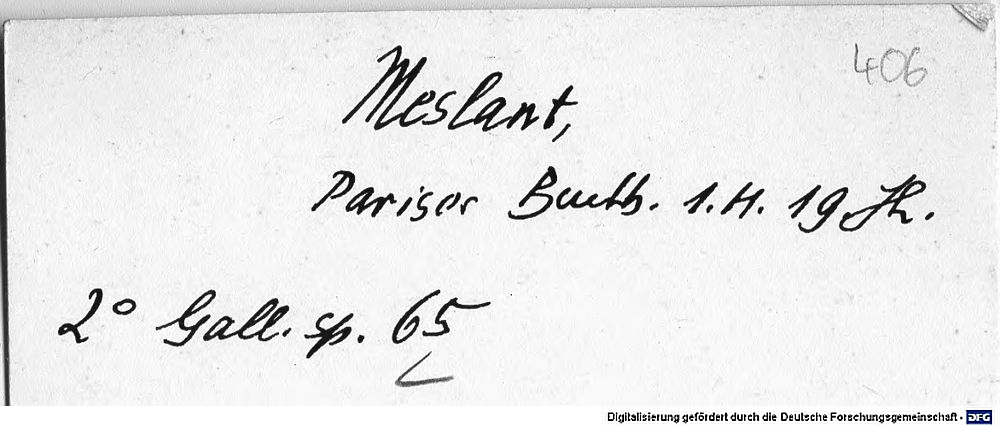 406
Meslant,
Pariser Buchh. 1. H. 19 Jh.
2° Gall. sp. 65
Digitalisierung gefördert durch die Deutsche Forschungsgemeinschaft - DFG